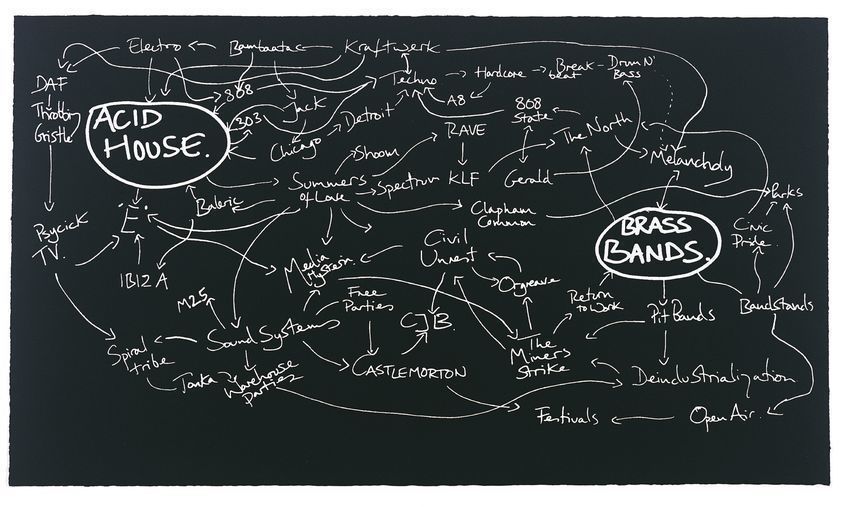 Electro
Bambaataa
Kraftwerk
DAF
808
Techno
Hardcore
Break-
beat
Drum N'
Bass
Throbbing
Gristle
ACID
HOUSE.
303
Jack
Detroit
A8
808
State
The North
Chicago
Shoom
RAVE
Melancholy
Summers
of Love
Spectrum
KLF
Gerald
Parks
Balearic
Clapham
Common
BRASS
BANDS.
Civic
Pride.
Psychick
TV.
'E'.
IBIZA
Media
Hysteria.
Civil
Unrest
Orgreave
M25
Free
Parties
CJB.
Return
to Work
Pit Bands
Bandstands
Spiral
tribe
Sound Systems
The
Miners
Strike
Tonka
Warehouse
Parties
CASTLEMORTON
Deindustrialization
Festivals
Open Air.